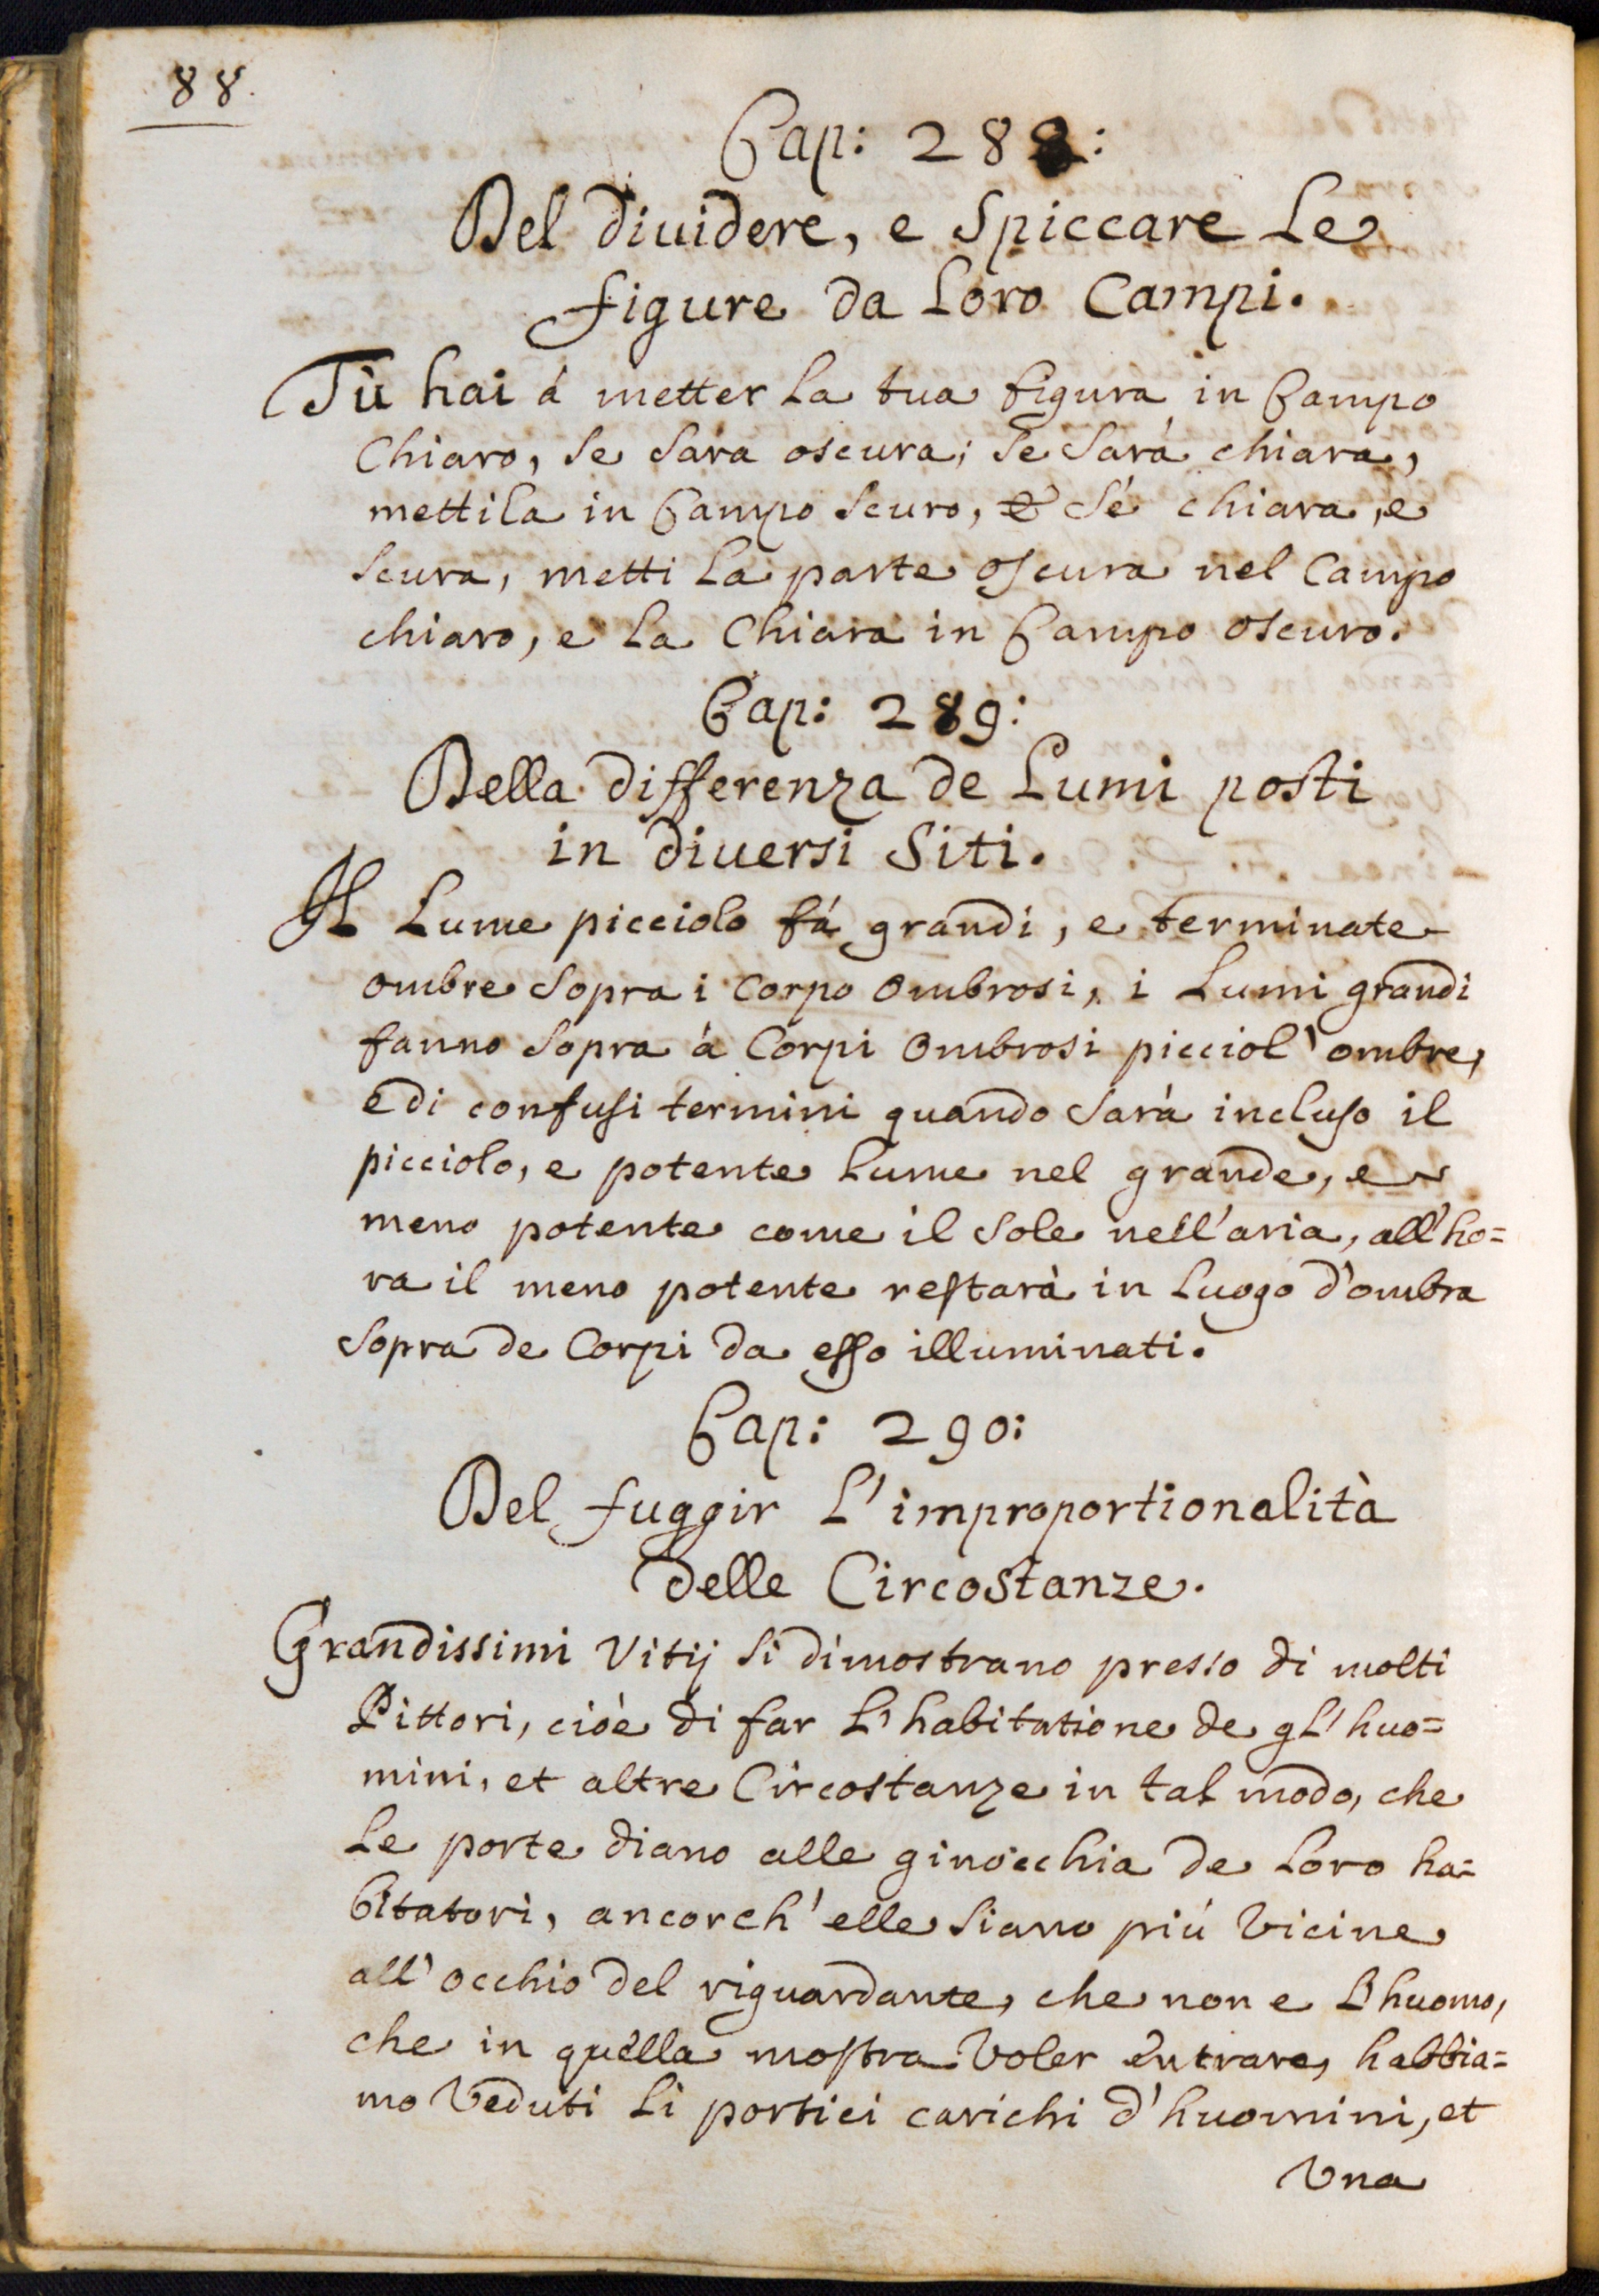 88.
Cap: 288:
Del diuidere, e Spiccare Le
figure da Loro Campi.
Tù hai á metter La tua figura in Campo
Chiaro, Se Sara oscura; Se Sarà chiara,
mettila in Campo Scuro, & Sé chiara, e
Scura, metti La parte oscura nel Campo
chiaro, e La Chiara in Campo oscuro.
Cap: 289:
Della differenza de Lumi posti
in diuersi Siti.
Il Lume picciolo fá grandi, e terminate
ombre Sopra i Corpo Ombrosi, i Lumi grandi
fanno Sopra à Corpi Ombrosi picciol' ombre,
e di confusi termini quando Sarà incluso il
picciolo, e potente Lume nel grande, e
meno potente come il Sole nell'aria, all'ho=
ra il meno potente restarà in Luogo d'ombra
Sopra de Corpi da esso illuminati.
Cap: 290:
Del fuggir L'improportionalità
delle Circostanze.
Grandissimi Vitij Si dimostrano presso di molti
Pittori, cioè di far L'habitatione de gL'huo=
mini, et altre Circostanze in tal modo, che
Le porte diano alle ginocchia de Loro ha=
bitatori, ancorch'elle Siano piú Vicine
all'occhio del riguardante, che non e L'huomo,
che in quella mostra Voler entrare, habbia=
mo Veduti Li portici carichi d'huomini, et
Vna